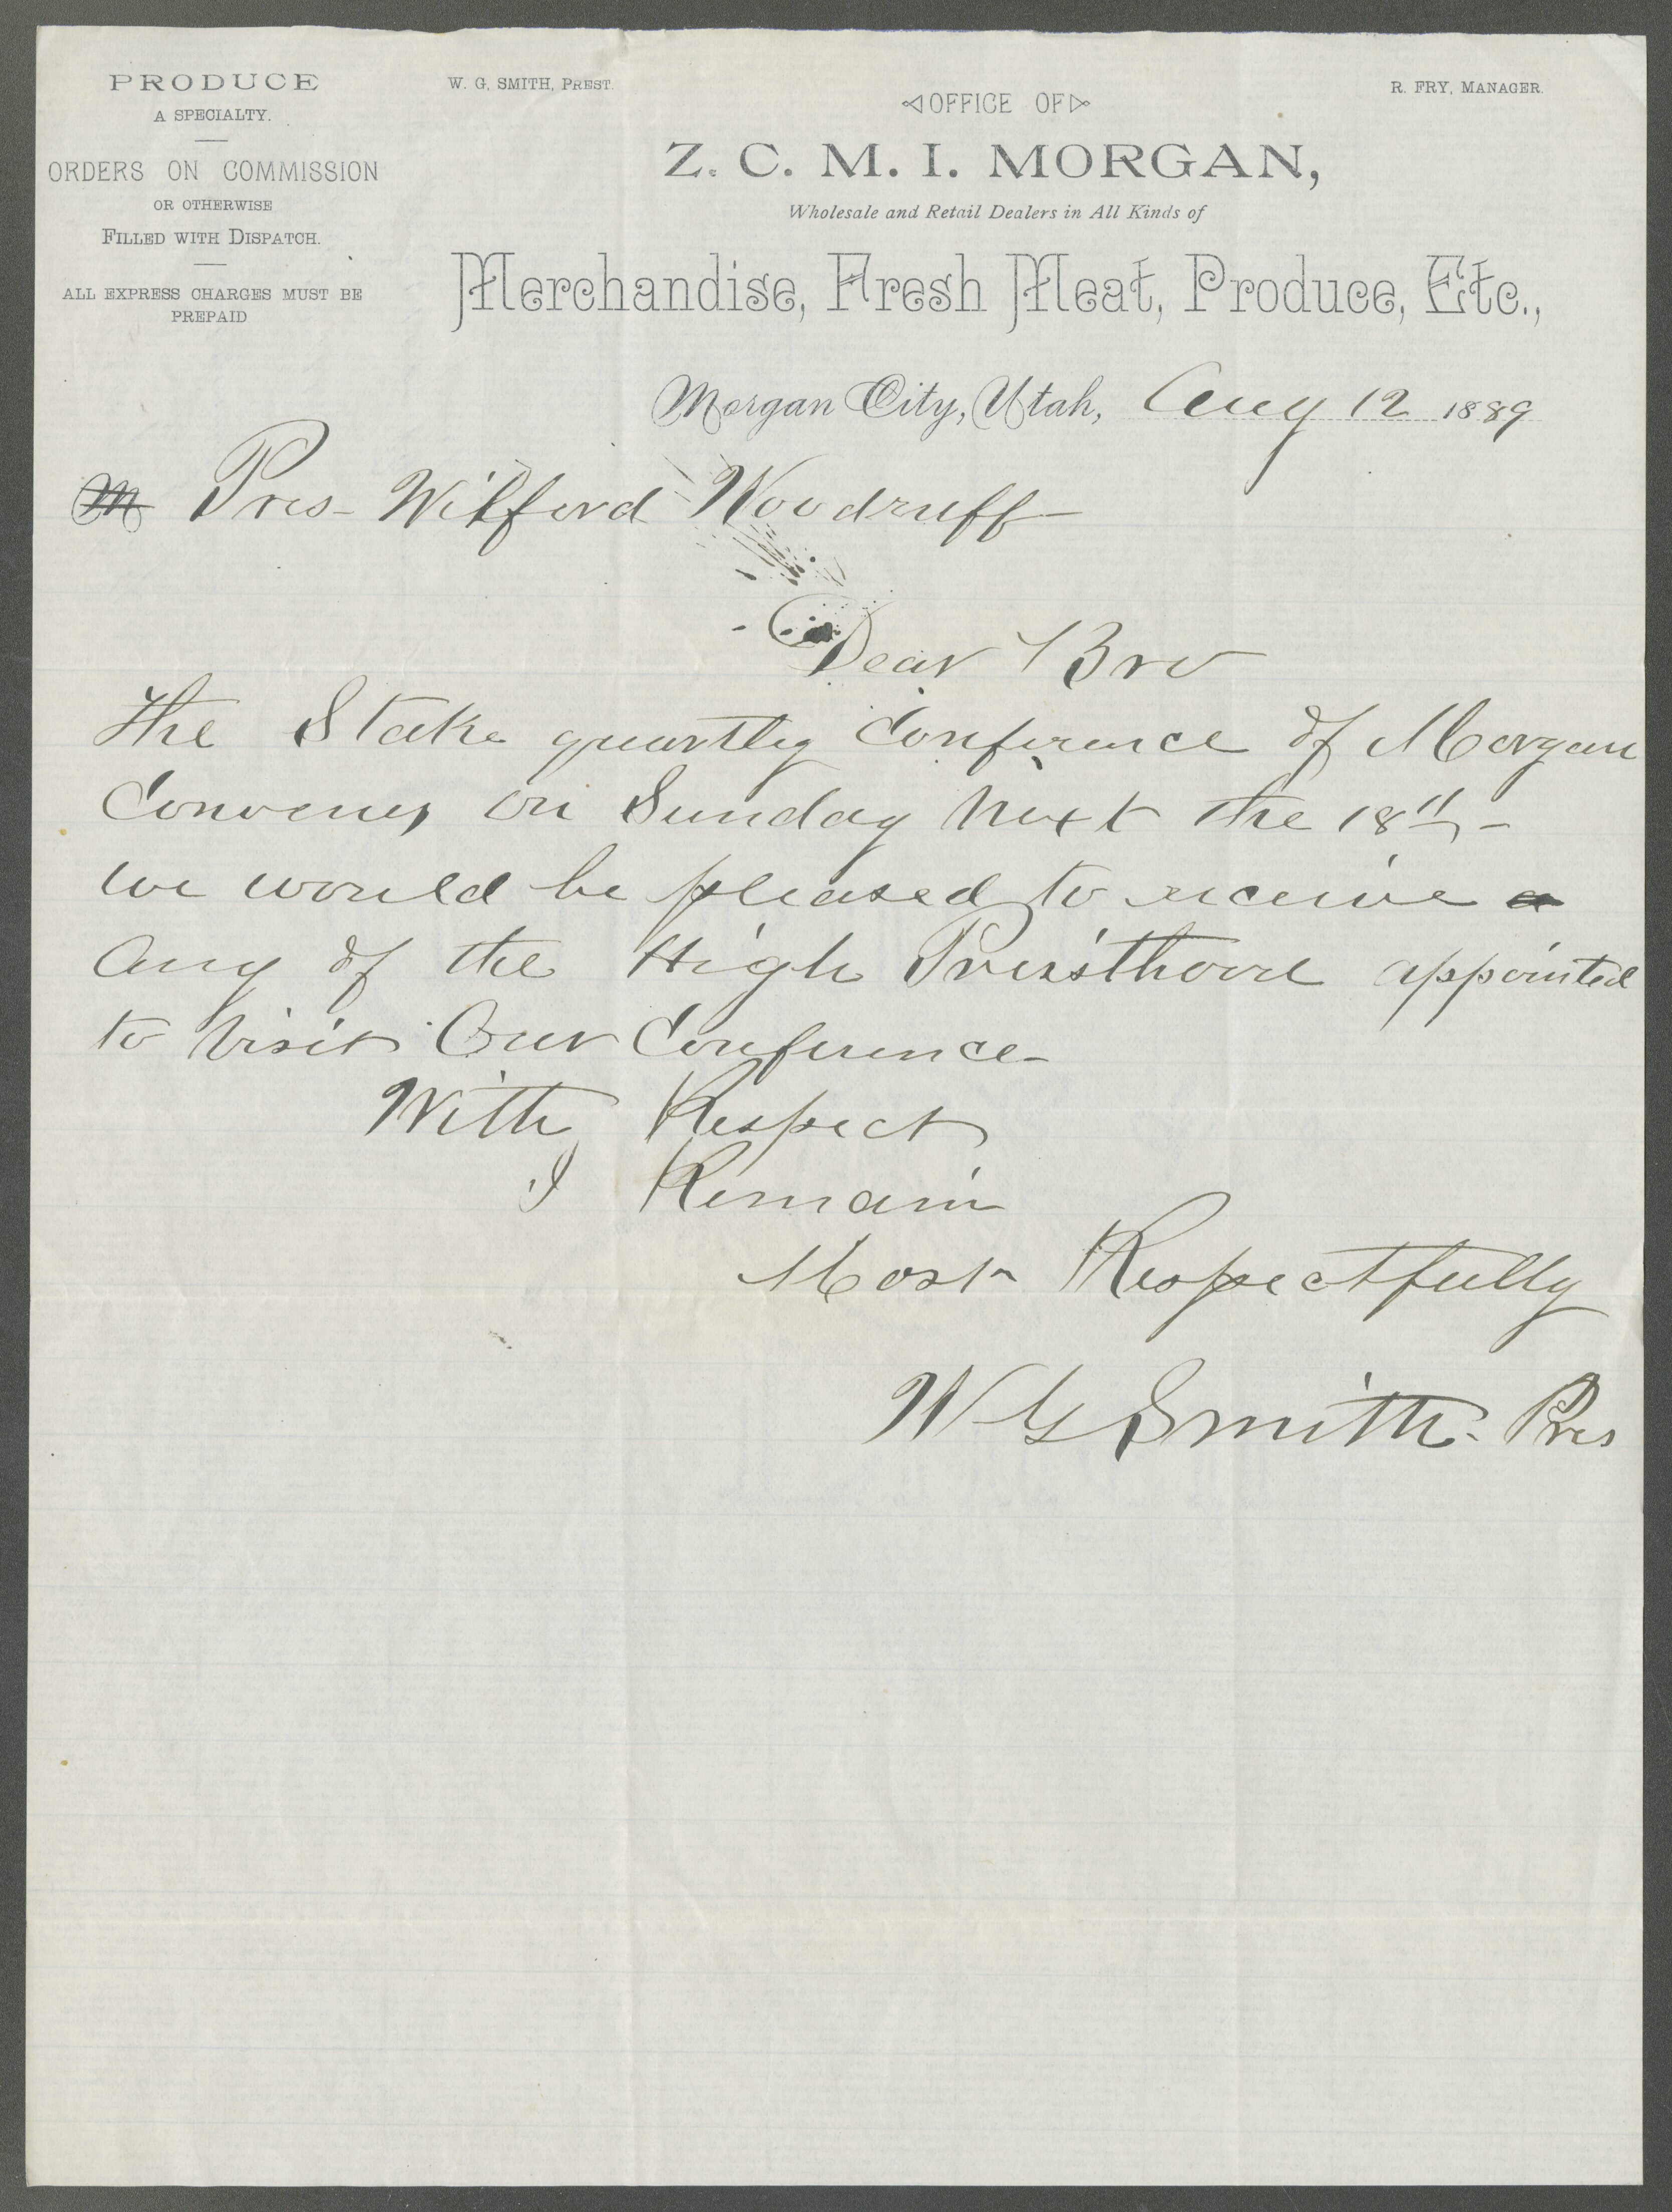 PRODUCE
A SPECIALTY.
ORDERS ON COMMISSION
OR OTHERWISE
FILLED WITH DISPATCH.
ALL EXPRESS CHARGES MUST BE
PREPAID
W. G. SMITH, PREST.
OFFICE OF
R. FRY, MANAGER.
Z. C. M. I. MORGAN,
Wholesale and Retail Dealers in All Kinds of
Merchandise, Fresh Meat, Produce, Etc.,
Morgan City, Utah, Aug 12 1889
M Pres- Wilford Woodruff
Dear Bro
The Stake quartly Conference of Morgan
Convenes on Sunday Next the 18th -
we would be pleased to receive a
any of the High Priesthood appointed
to visit Our Conference-
With Respect
I Remain
Most Respectfully
W G Smith- Pres